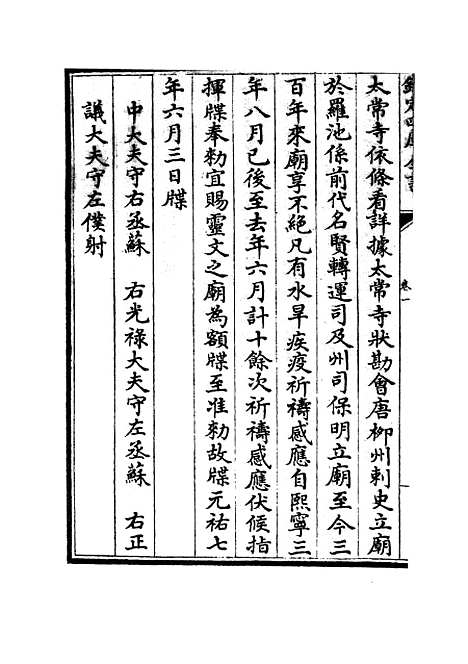 欽定四庫全書
卷一
太常寺依條看詳據太常寺狀勘會唐柳州刺史立廟
於羅池係前代名賢轉運司及州司保明立廟至今三
百年來廟享不絕凡有水旱疾疫祈禱感應自熙寧三
年八月已後至去年六月計十餘次祈禱感應伏候指
揮牒奉勑宜賜靈文之廟為額牒至准勑故牒元祐七
年六月三日牒
中大夫守右丞蘇　右光祿大夫守左丞蘇　右正
議大夫守左僕射